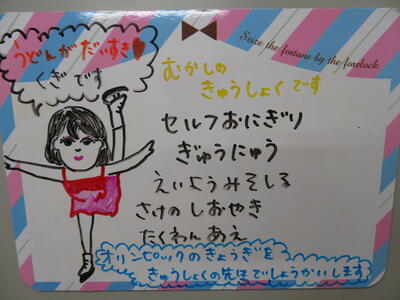 うどんがだいすき♥
くぎです
Seize the fortune by the forelock.
むかしの
きゅうしょくです
セルフおにぎり
ぎゅうにゅう
えいようみそしる
さけのしおやき
たくわんあえ
オリンピックのきょうぎを
きゅうしょくの先生でしょうかいします